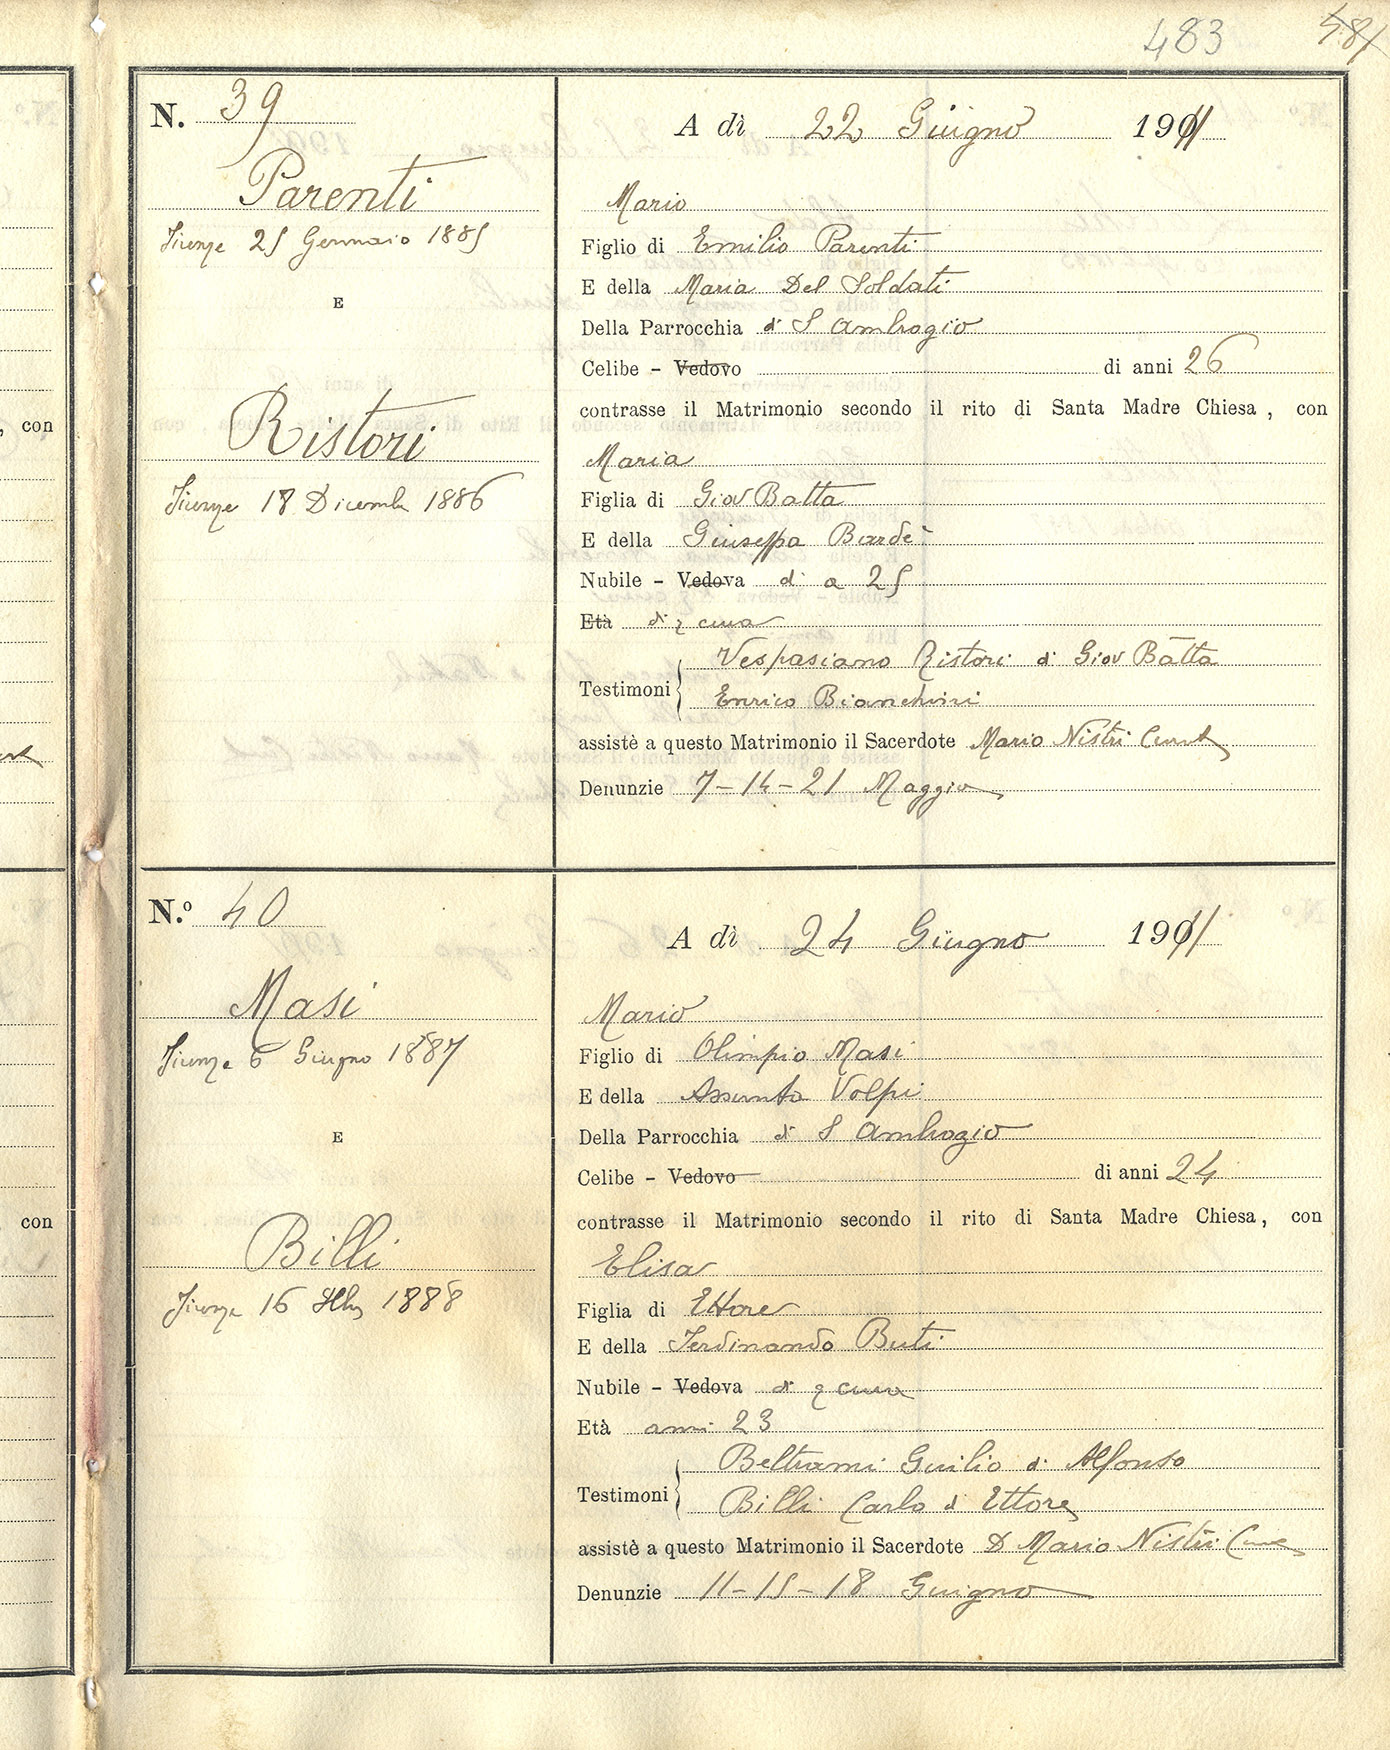 483
N. 39
Parenti
Firenze 25 Gennaio 1885
E
Ristori
Firenze 18 Dicembr 1886
A dì 22 Giugno 1911
Mario
Figlio di Emilio Parenti
E della Maria Del Soldati
Della Parrocchia di S Ambrogio
Celibe - Vedovo di anni 26
contrasse il Matrimonio secondo il rito di Santa Madre Chiesa, con
Maria
Figlia di Giov Batta
E della Giuseppa Bardi
Nubile - Vedova di a 25
Età di q cura
Testimoni Vespasiano Ristori di Giov Batta
Enrico Bianchini
assistè a questo Matrimonio il Sacerdote Mario Nistri
Denunzie 7-14-21 Maggio
N.º 40
Masi
Firenze 6 Giugno 1887
E
Billi
Firenze 16 1888
A dì 24 Giugno 1911
Mario
Figlio di Olimpio Masi
E della Assunta Volpi
Della Parrocchia di S Ambrogio
Celibe - Vedovo di anni 24
contrasse il Matrimonio secondo il rito di Santa Madre Chiesa, con
Elisa
Figlia di Ettore
E della Ferdinando Buti
Nubile - Vedova di q cura
Età anni 23
Testimoni Beltrami Guilio di Alfonso
Billi Carlo di Ettore
assistè a questo Matrimonio il Sacerdote D Mario Nistri
Denunzie 11-15-18 Giugno
, con
con